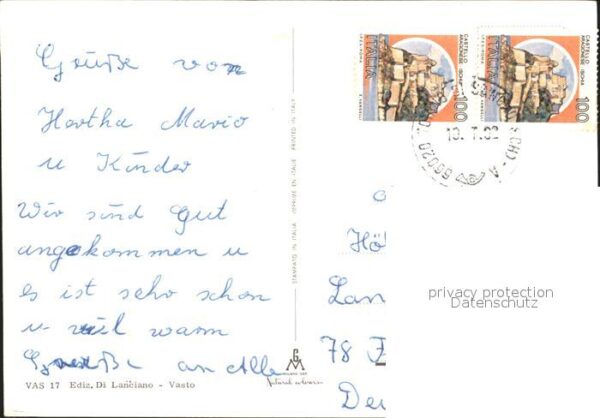 Grüße von
Hertha Mario
u Kinder
Wir sind gut
angekommen u
es ist sehr schön
u viel warm
Grüße an Alle
VAS 17 Ediz. Di Lanciano - Vasto
STAMPATO IN ITALIA IMPRIMÉ EN ITALIE PRINTED IN ITALY
CASTELLO
ARAGONESE - ISCHIA
ITALIA
100
CASTELLO
ARAGONESE - ISCHIA
ITALIA
100
66020
13.7.82
(CH) - A
Hö
Lan
78
De
privacy protection
Datenschutz